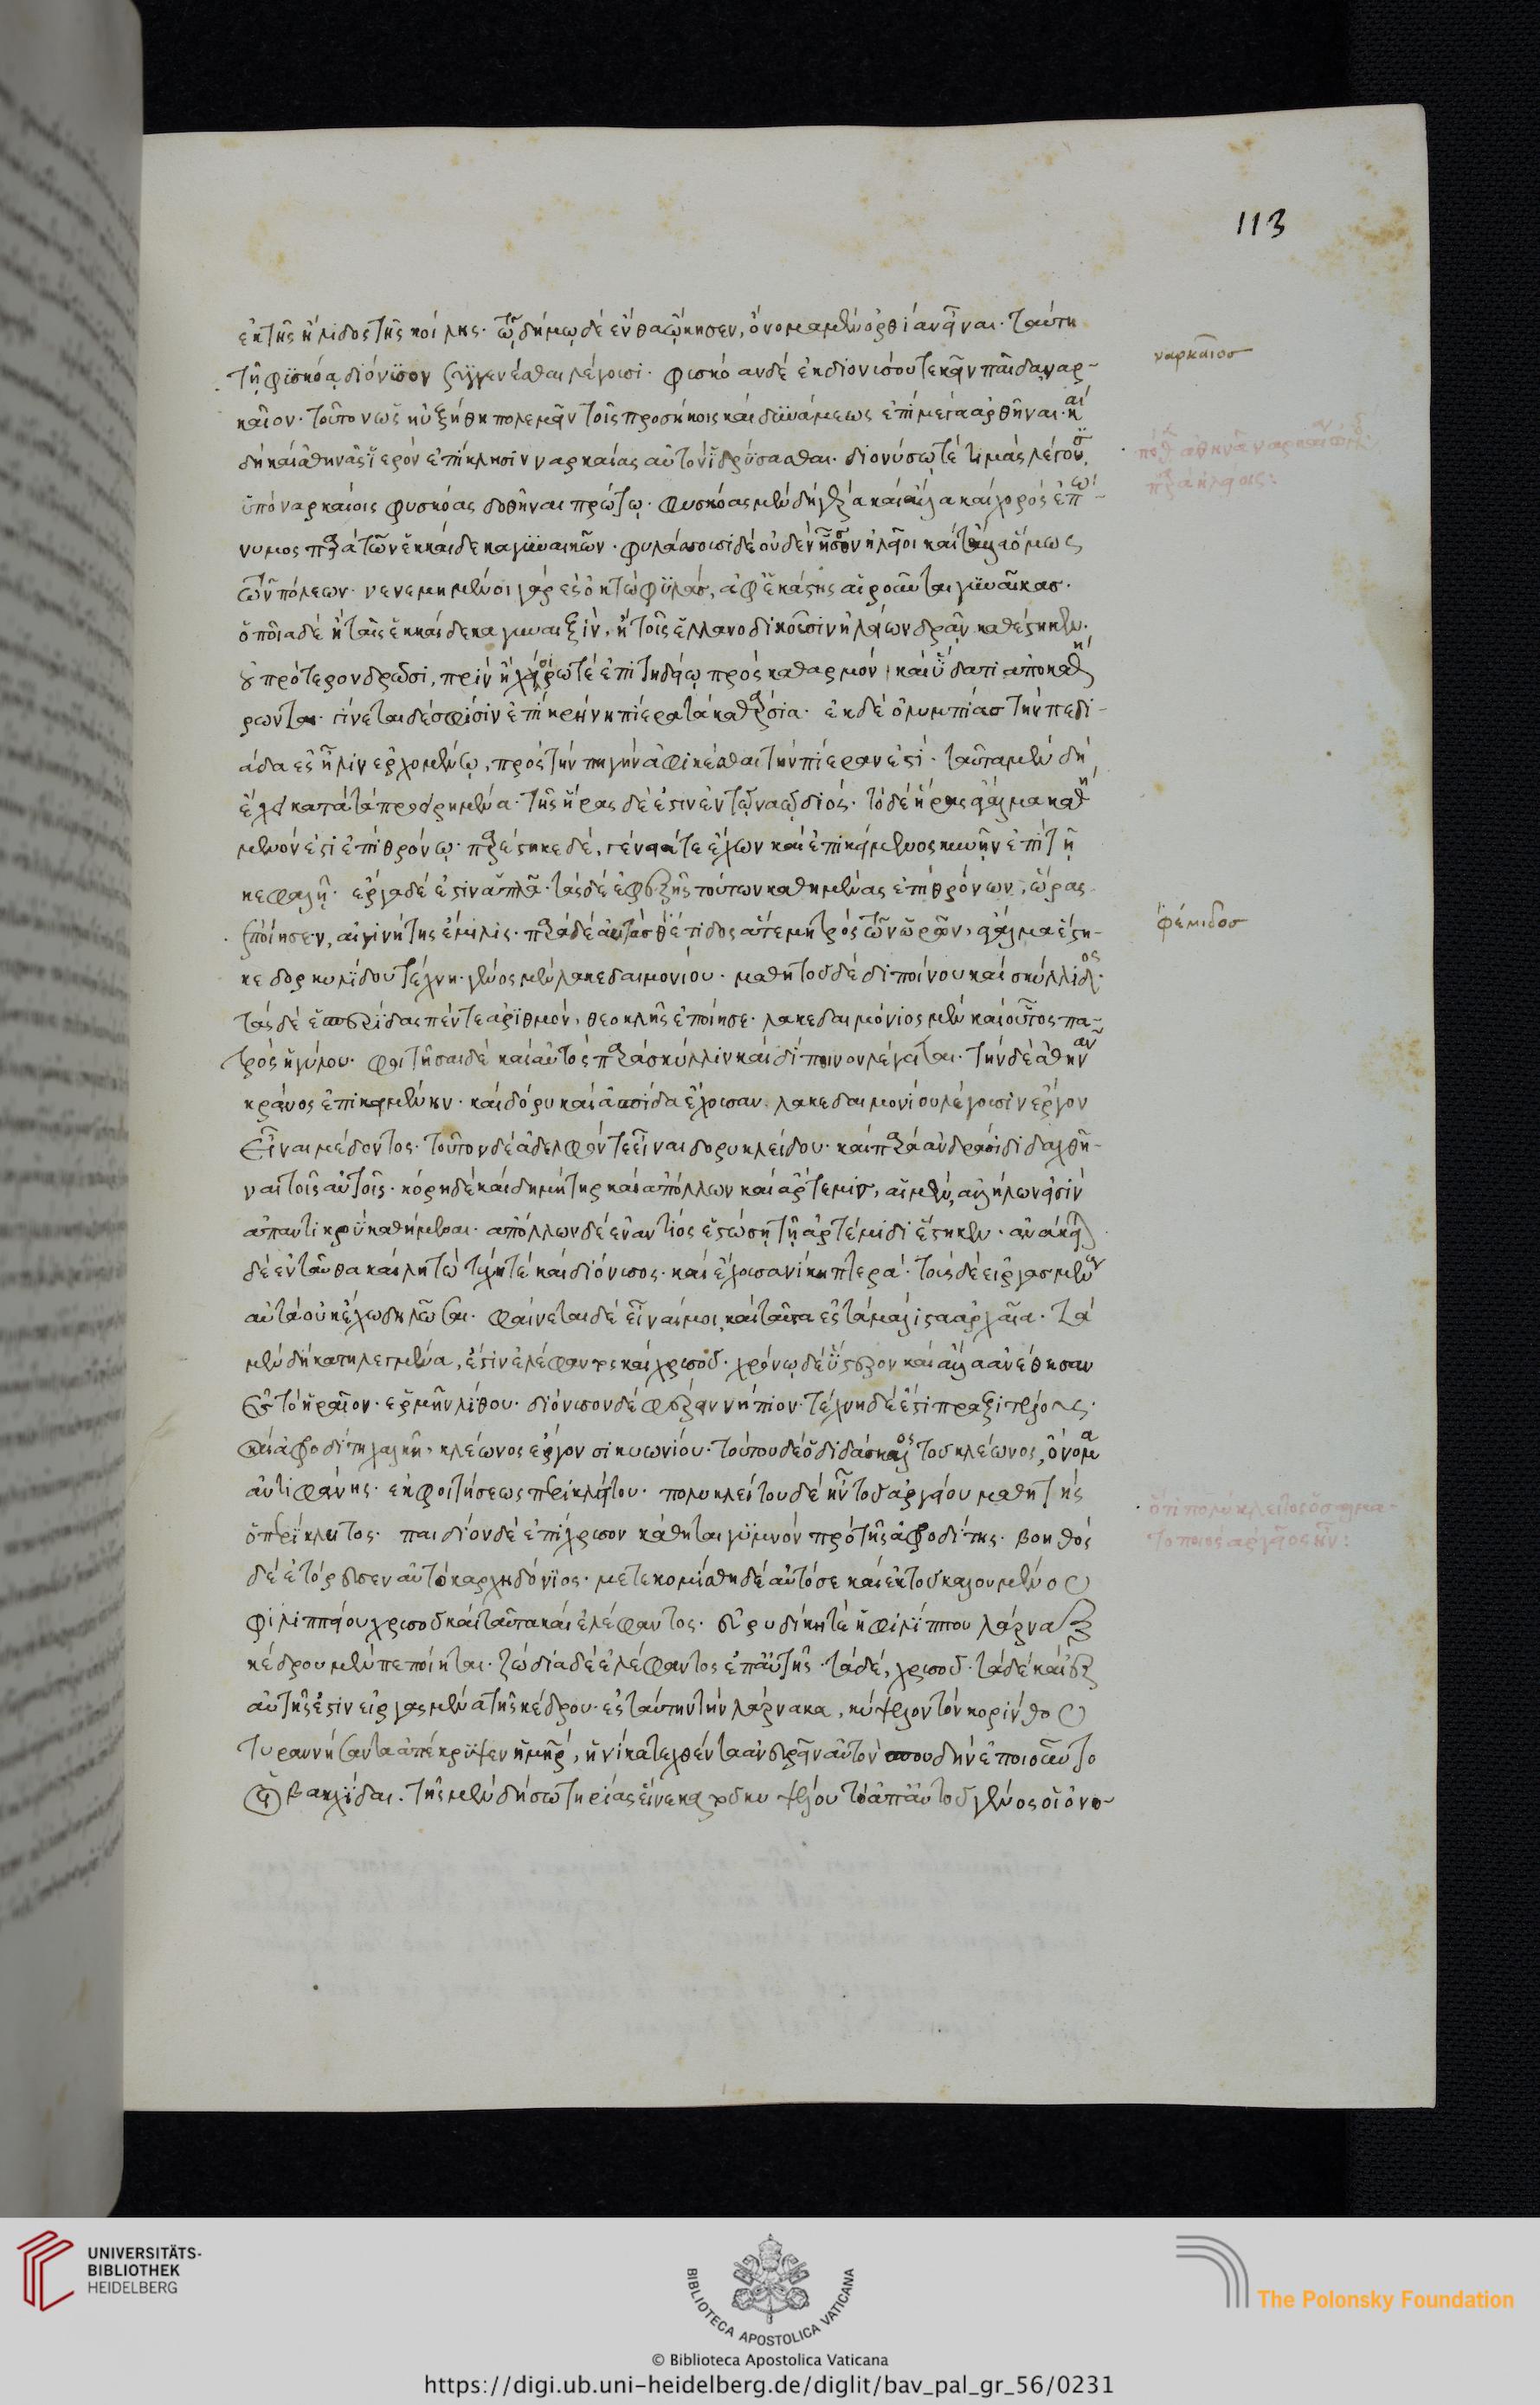 113
ἐκ τῆς ἤλιδος τῆς κοίλης· τῷ δήμῳ δὲ ἔνθα ᾤκησεν, ὄνομα μὲν ὀρθίαν εἶναι· ταύτη
τῇ φισκόᾳ διόνϋσον συγγενέσθαι λέγοισι· φισκόαν δὲ ἐκ διονίσου τεκεῖν παῖδα ναρ-
ναρκαῖοσ
καῖον· τοῦτον ὡς ηὐξήθη πολεμεῖν τοῖς προσήκοις καὶ δυνάμεως ἐπὶ μέγα ἀρθῆναι· καὶ
δὴ καὶ ἀθηνᾶς ἱερὸν ἐπίκλησιν ναρκαίας αὐτὸν ἱδρύσασθαι· διονύσῳ τὲ τιμὰς λέγουσιν
ὑπὸ ναρκαίοις φυσκόας δοθῆναι πρώτῳ· φυσκόας μὲν δὴ γέρα καὶ ἄλλα καὶ χορὸς ἐπώ-
νυμος παρὰ τῶν ἑκκαίδεκα γυναικῶν· φυλάσσοισι δὲ οὐδὲν ἧσσον ἠλεῖοι καὶ τἄλλα ὅμως
τῶν πόλεων· νενεμημένοι γὰρ ἐς ὀκτὼ φϋλὰσ, ἀφ ἑκάστης αἱροῦνται γϋναῖκασ·
ὁποῖα δὲ ἢ ταῖς ἑκκαίδεκα γυναιξὶν, ἢ τοῖς ἑλλανοδικοῦσιν ἠλείων δρᾶν καθέστηκεν·
οὐ πρότερον δρῶσι, πρὶν ἢ χοίρῳ τὲ ἐπιτηδείῳ πρὸς καθαρμὸν καὶ ὕδατι ἀποκαθή
ρωνται· γίνεται δὲ σφίσιν ἐπὶ κρήνη πιέρα τὰ καθάρσια· ἐκ δὲ ὀλυμπίασ τὴν πεδι-
άδα ἐς ἦλιν ἐρχομένῳ, πρὸς τὴν πηγὴν ἀφικέσθαι τὴν πιέραν ἐστί· ταῦτα μὲν δὴ
ἔχει κατὰ τὰ προειρημένα· τῆς ἥρας δέ ἐστιν ἐν τῷ ναῷ διός· τὸ δὲ ἥρας ἄγαλμα καθή
μενόν ἐστι ἐπὶ θρόνῳ· παρέστηκε δὲ, γένειά τε ἔχων καὶ ἐπικείμενος κυνῆν ἐπὶ τῇ
κεφαλῇ· ἔργα δέ ἐστιν ἁπλᾶ· τὰς δὲ ἐφεξῆς τούτων καθημένας ἐπὶ θρόνων, ὥρας
ἐποίησεν, αἰγινήτης ἔμιλις· παρὰ δὲ αὐτὰσ θέτιδος ἅτε μητρὸς τῶν ὡρῶν, ἄγαλμα ἕστη-
θέμιδοσ
κε δορκυλίδου τέχνη· γένος μὲν λακεδαιμονίου· μαθητοῦ δὲ διποίνου καὶ σκύλλιδος·
τὰς δὲ ἑσπερίδας πέντε ἀριθμὸν, θεοκλῆς ἐποίησε· λακεδαιμόνιος μὲν καὶ οὗτος πα-
τρὸς ἡγύλου· φοιτῆσαι δὲ καὶ αὐτὸς παρὰ σκύλλιν καὶ δίποινον λέγεται· τὴν δὲ ἀθηνᾶν
κράνος ἐπικειμένην· καὶ δόρυ καὶ ἀσπίδα ἔχοισαν. λακεδαιμονίου λέγοισιν ἔργον
εἶναι μέδοντος· τοῦτον δὲ ἀδελφόν τε εἶναι δορυκλείδου· καὶ παρὰ ἀνδράσι διδαχθῆ-
ναι τοῖς αὐτοῖς· κόρη δὲ καὶ δημήτηρ καὶ ἀπόλλων καὶ ἄρτεμισ, αἱ μὲν, ἀλλήλων εἰσὶν
ἀπαντικρὺ καθήμεναι· ἀπόλλων δὲ ἐναντίος ἑστώσῃ τῇ ἀρτέμιδι ἕστηκεν· ἀνάκειται
δὲ ἐνταῦθα καὶ λητὼ τύχη τὲ καὶ διόνισος· καὶ ἔχοισα νίκη πτερά· τοὺς δὲ εἰργασμένους
αὐτὰ οὐκ ἔχω δηλῶσαι· φαίνεται δὲ εἶναί μοι, καὶ ταῦτα ἐς τὰ μάλιστα ἀρχαῖα· τὰ
μὲν δὴ κατηλεγμένα, ἐστὶν ἐλέφαντος καὶ χρισοῦ· χρόνῳ δὲ ὕστερον καὶ ἄλλα ἀνέθησαν
ἐς τὸ ἡραῖον· ἑρμῆν λίθου· διόνισον δὲ φέρει νήπιον· τέχνη δέ ἐστι πραξιτέλους·
καὶ ἀφροδίτη χαλκῆ, κλέωνος ἔργον σικυωνίου· τούτου δὲ ὁ διδάσκαλος τοῦ κλέωνος, ὄνομα
ἀντιφάνης· ἐκ φοιτήσεως περικλείτου· πολυκλείτου δὲ ἦν τοῦ ἀργείου μαθητὴς
ὁ περίκλειτος· παιδίον δὲ ἐπίχρισον κάθηται γϋμνὸν πρὸ τῆς ἀφροδίτης· βοηθὸς
ὅτι πολυκλειτος ὁσ αγαλμα-
τοποιὸς ἀργεῖος ἦν:
δὲ ἐτόρευσεν αὐτὸ καρχηδόνϊος· μετεκομίσθη δὲ αὐτόσε καὶ ἐκ τοῦ καλουμένου
φιλιππείου χρισοῦ καὶ ταῦτα καὶ ἐλέφαντος· εὐρυδίκη τὲ ἡ φιλίππου λάρναξ
κέδρου μὲν πεποίηται· ζώδια δὲ ἐλέφαντος ἐπ αὐτῆς· τὰ δὲ, χρισοῦ· τὰ δὲ καὶ ἐξ
αὐτῆς ἐστιν εἰργασμένα τῆς κέδρου· ἐς ταύτην τὴν λάρνακα, κύψελον τὸν κορίνθου
τυραννήσαντα ἀπέκρϋψεν ἡ μήτηρ, ἡνίκα τεχθέντα ἀνευρεῖν αὐτὸν σπουδὴν ἐποιοῦντο
οἱ βακχίδαι. τῆς μὲν δὴ σωτηρίας εἵνεκα τοῦ κυψέλου τὸ ἀπ αὐτοῦ γένος οἱ ὀνο-
UNIVERSITÄTS-
BIBLIOTHEK
HEIDELBERG
BIBLIOTECA APOSTOLICA VATICANA
The Polonsky Foundation
© Biblioteca Apostolica Vaticana
https://digi.ub.uni-heidelberg.de/diglit/bav_pal_gr_56/0231